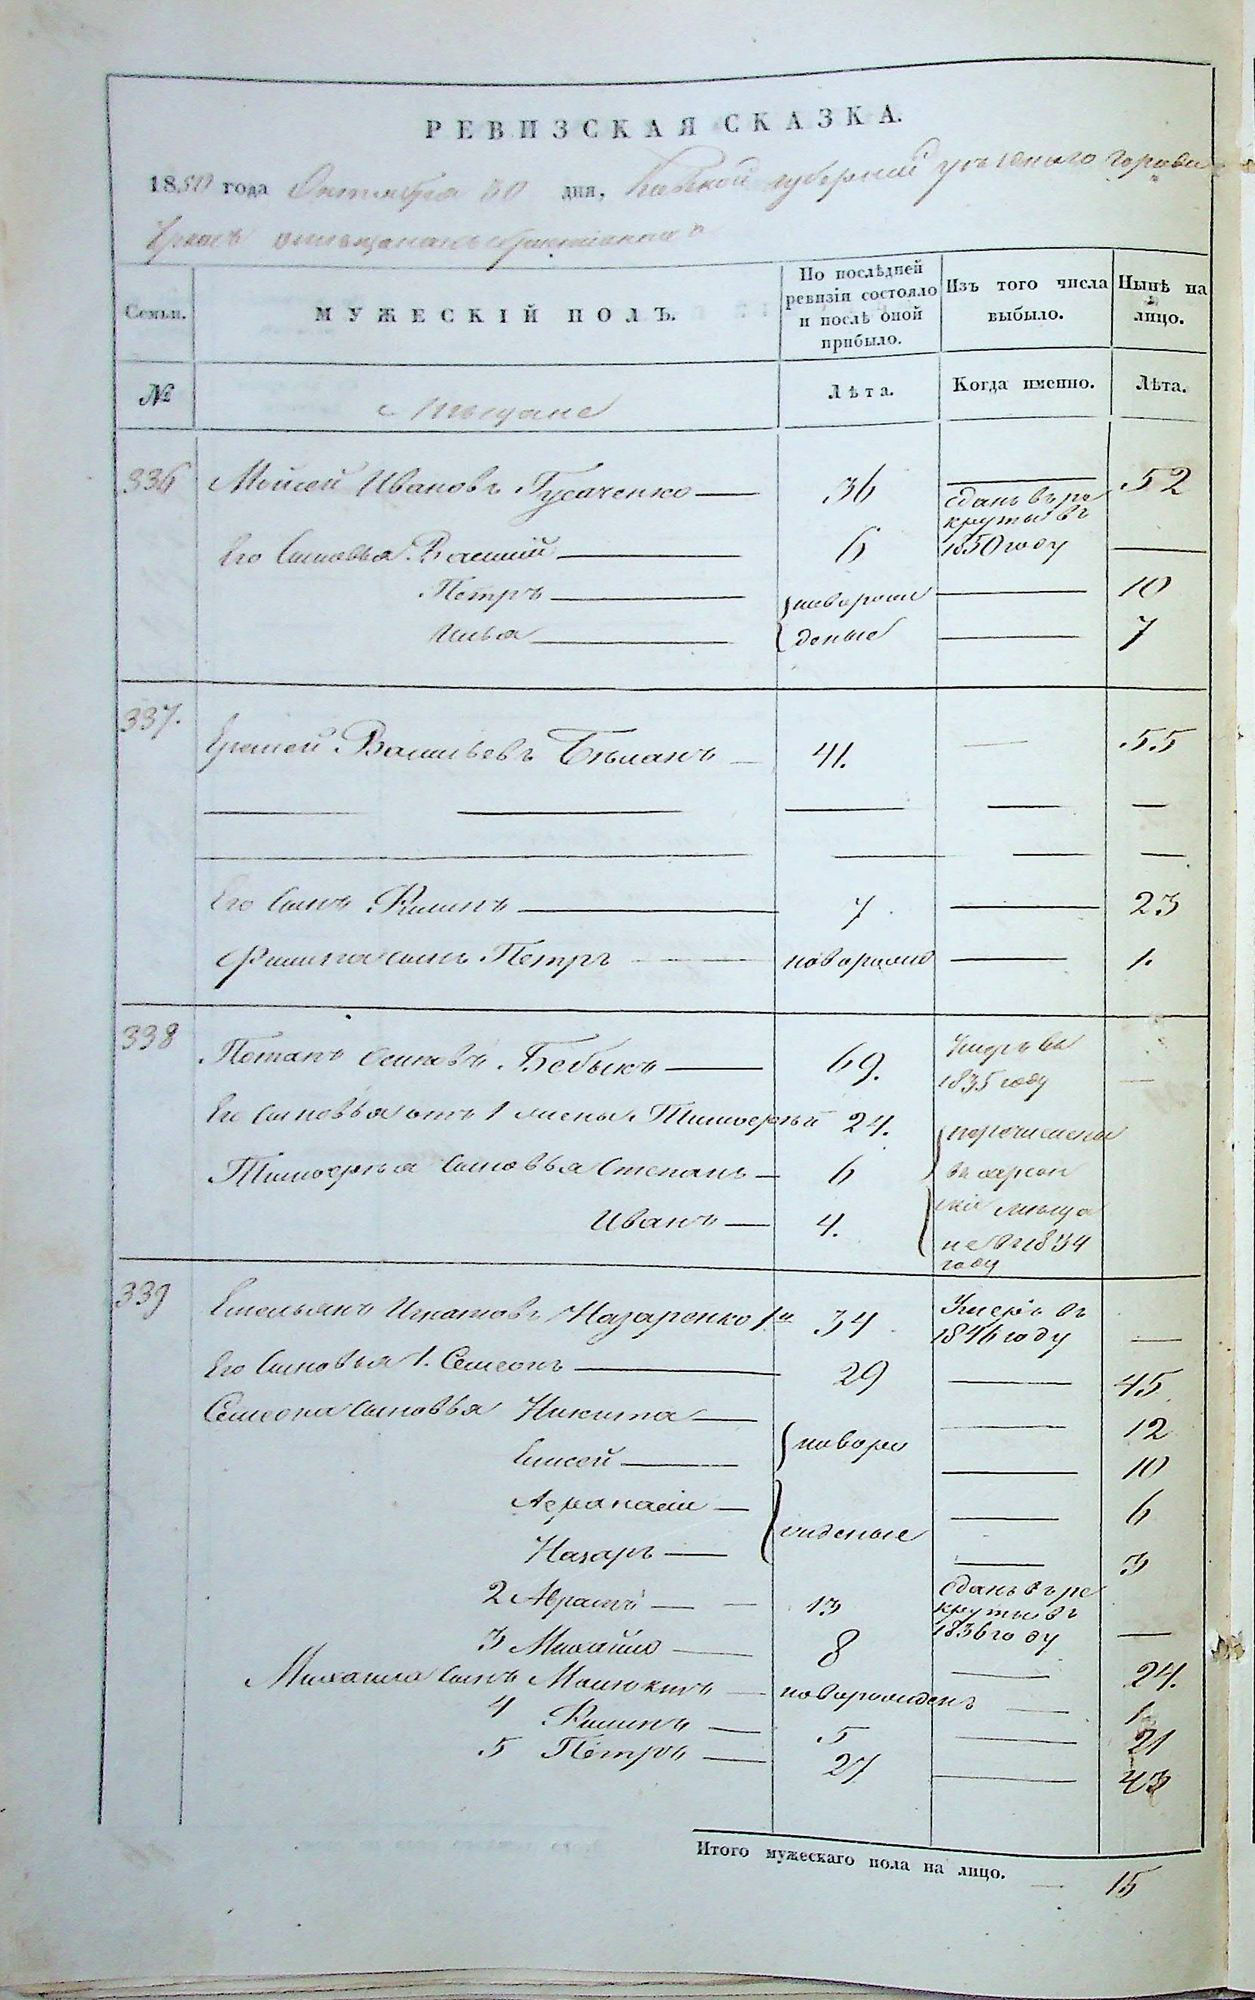 РЕВИЗСКАЯ СКАЗКА.
1850 года Октября 30 дня, губерніи уезднаго города
Семьи. МУЖЕСКІЙ ПОЛЪ. По послѣдней ревизіи состояло и послѣ оной прибыло. Изъ того числа выбыло. Нынѣ на лицо.
№ Мѣщане Лѣта. Когда именно. Лѣта.
336 Мойсей Ивановъ Гусаченко 36 52
Его Сыновья Василій 6 сданъ въ рекруты въ 1850 году
Петръ новорож 10
Илья денные 7
337. Еремей Васильевъ Бѣланъ 41. 55
Его Сынъ Филипъ 7 23
Филипа сынъ Петръ новорожд 1.
338 Потапъ Осиповъ Бебыкъ 69. Умеръ въ 1835 году
Его Сыновья отъ 1 жены Тимоѳей 24. перечислены
Тимоѳея Сыновья Степанъ 6 въ херсон
Иванъ 4. скіе мѣща
не въ 1834
году
339 Емельянъ Игнатовъ Назаренко 1й 34 Умеръ въ 1846 году
Его Сыновья 1. Семеонъ 29 45
Семеона Сыновья Никита новоро 12
Елисей 10
Аѳанасій жденые 6
Назаръ 3
2 Абрамъ 13 сданъ въ рекруты въ 1836 году
3 Михайло 8 24.
Михаила Сынъ новорожденъ 1
4 Филипъ 5 21
5 Петръ 27 43
Итого мужескаго пола на лицо. 15